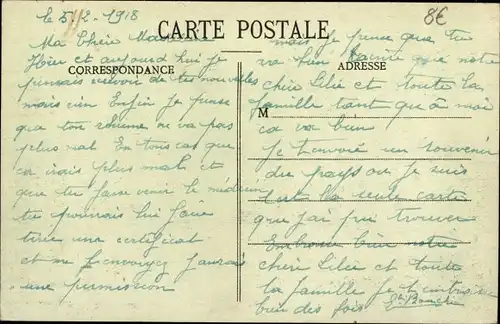 le 5/2-1918
8€
CARTE POSTALE
CORRESPONDANCE
ADRESSE
M
Ma Chère
Hier et aujourd hui je
pensais recevoir de tes nouvelles
mais rien Enfin je pense
que ton rhume ne va pas
plus mal En tous cas que
ca irais plus mal et
que tu fasse venir le médecin
tu pourrais lui faire
faire une certificat
et me l'envoyez J'aurais
une permission
mais je pense que tu
va bien que notre
chère Lilie et toute la
famille tant que à moi
ca va bien
Je t'envoie un souvenir
du pays ou je suis
c'est la seule carte
que j'ai pu trouver
Embrasse bien notre
chère Lilie et toute
la famille Je t'embrasse
bien des fois